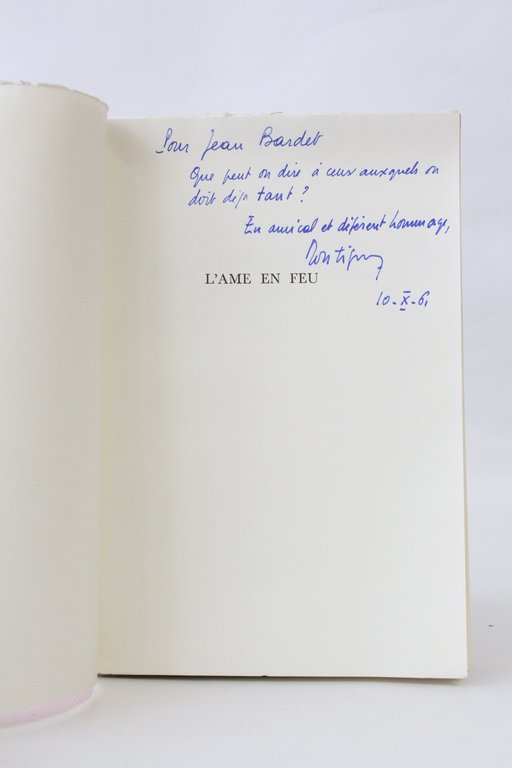 Pour Jean Bardet
Que peut on dire à ceux auxquels on
doit déja tant ?
En amical et déférent hommage,
Montigny
L'AME EN FEU
10-X-61